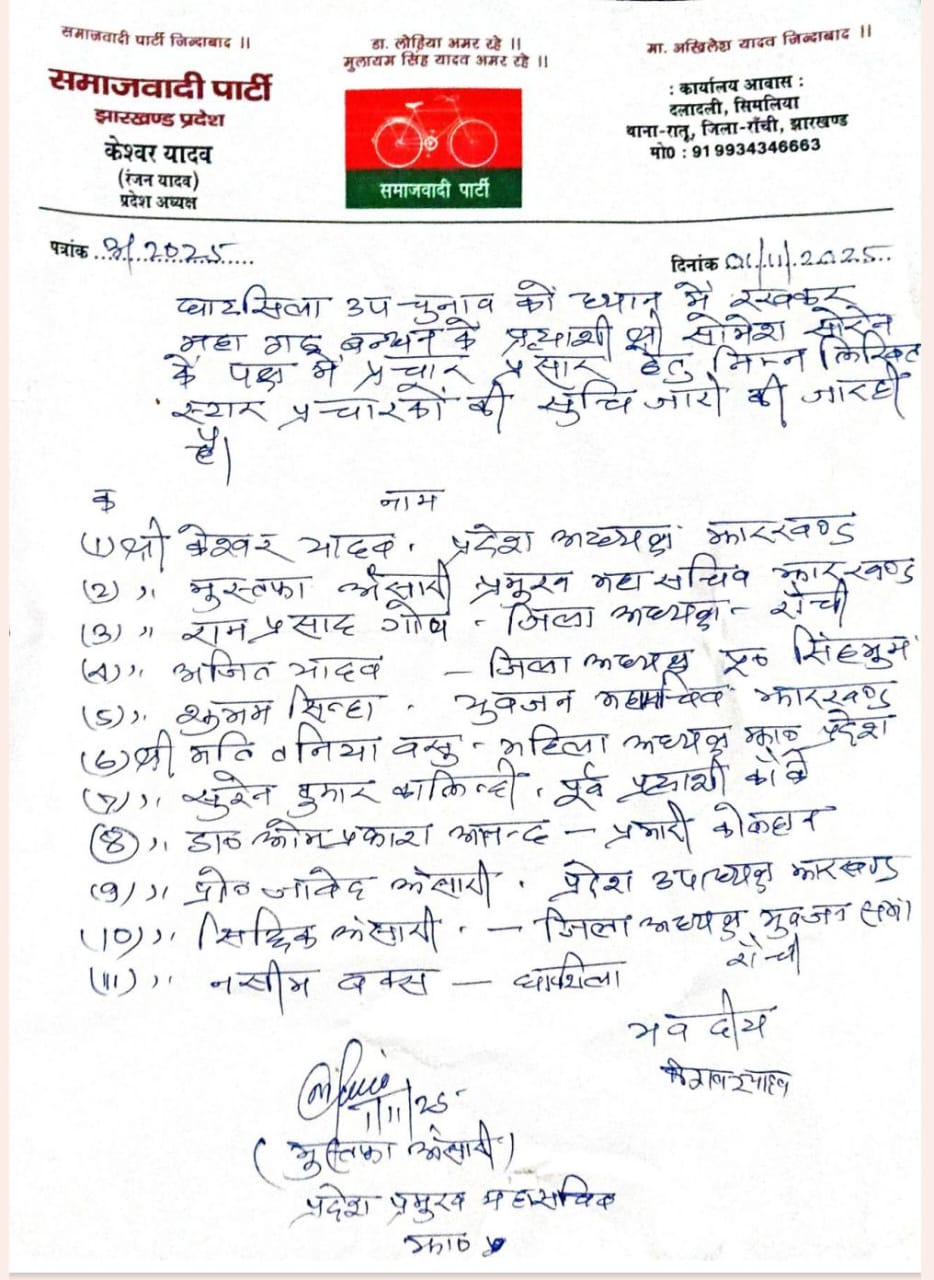 समाजवादी पार्टी जिन्दाबाद ।।
डा. लोहिया अमर रहे ।।
मुलायम सिंह यादव अमर रहे ।।
मा. अखिलेश यादव जिन्दाबाद ।।
समाजवादी पार्टी
झारखण्ड प्रदेश
केश्वर यादव
(रंजन यादव)
प्रदेश अध्यक्ष
समाजवादी पार्टी
: कार्यालय आवास :
दलादली, सिमलिया
थाना-रातू, जिला-राँची, झारखण्ड
मो0 : 91 9934346663
पत्रांक ../2025.....
दिनांक 01/11/2025..
घाटसिला उप चुनाव को ध्यान में रखकर
महा गठ बन्धन के प्रत्याशी श्री सोमेश सोरेन
के पक्ष में प्रचार प्रसार हेतु निम्न लिखित
स्टार प्रचारकों की सुचि जारी की जारही
है।
क नाम
(1) श्री केश्वर यादव. प्रदेश अध्यक्ष झारखण्ड
(2) ,, मुस्तफा अंसारी प्रमुख महासचिव झारखण्ड
(3) ,, राम प्रसाद गोप - जिला अध्यक्ष - राँची
(4) ,, अजित यादव - जिला अध्यक्ष पू० सिंहभुम
(5) ,, शुभम सिन्हा . युवजन महासचिव झारखण्ड
(6) श्री मति तनिया वसु - महिला अध्यक्ष झा० प्रदेश
(7) ,, सुरेन कुमार कालिन्दी . पूर्व प्रत्याशी
(8) ,, डा० ओम प्रकाश आनन्द - प्रभारी कोल्हान
(9) ,, प्रो० जावेद अंसारी . प्रदेश उपाध्यक्ष झारखण्ड
(10) ,, सिद्दिक अंसारी . - जिला अध्यक्ष युवजन सभा
राँची
(11) ,, नसीम बक्स - घाटशिला
भवदीय
केश्वर यादव
1/11/25
(मुस्तफा अंसारी)
प्रदेश प्रमुख महासचिव
झा०